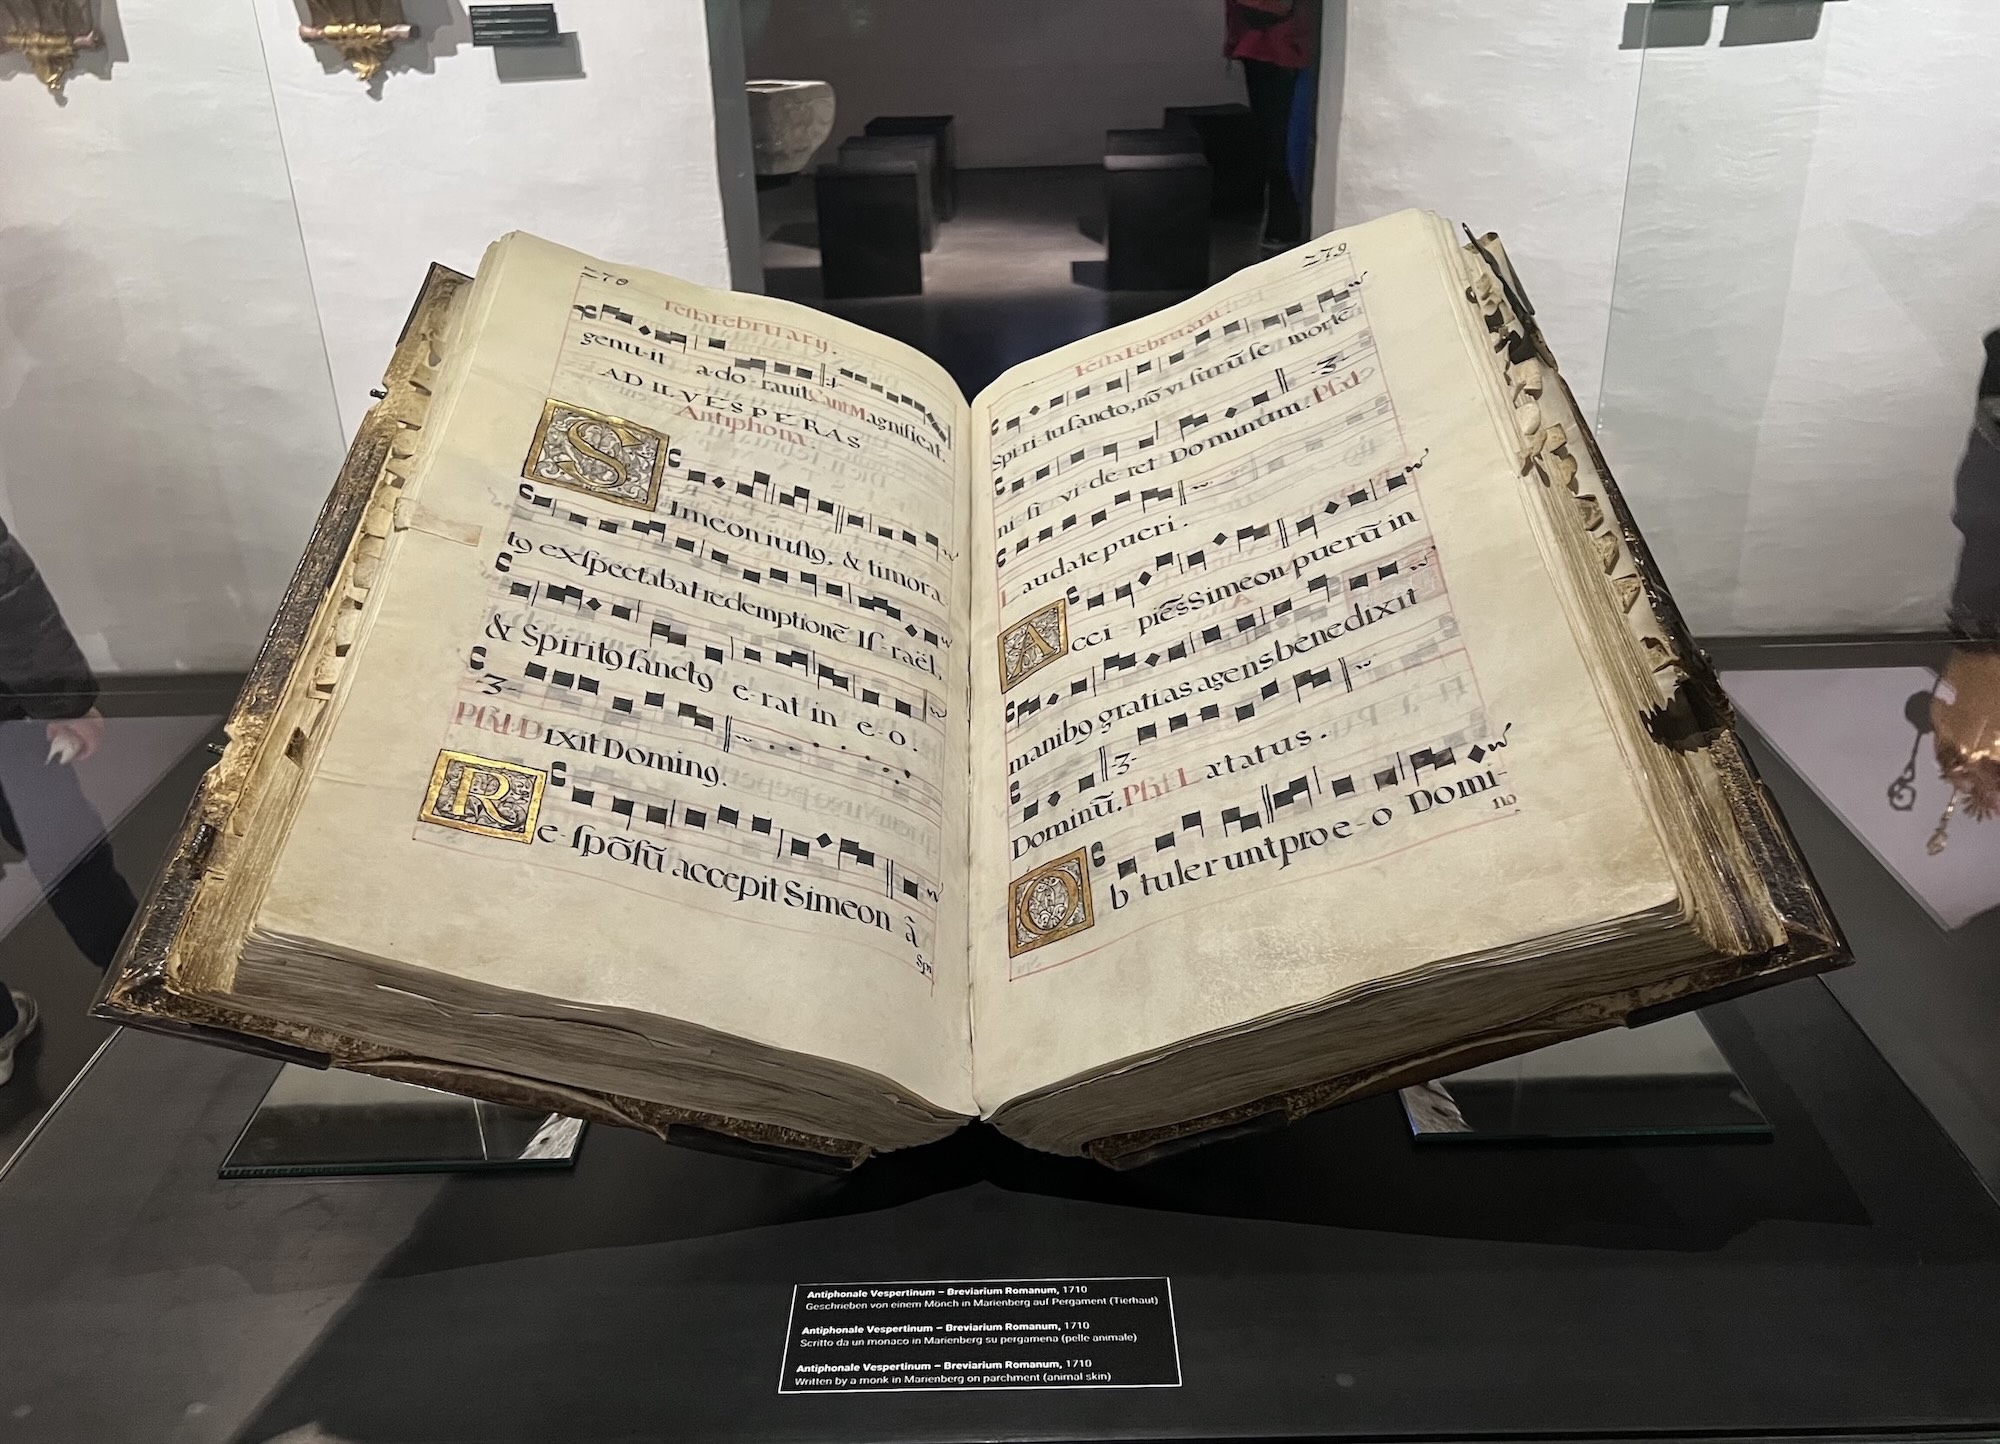 270
Festa Februarij.
genu-it a-do-rauit. Cant. Magnificat.
AD II. VESPERAS
Antiphona.
Simeon iustꝯ, & timora
tꝯ exspectabat redemptionẽ Is-raël,
& Spiritꝯ sanctꝯ e-rat in e-o.
-3-
Psal. Dixit Dominꝯ.
Re-spõsũ accepit Simeon à
Spi
279
Festa Februarii.
Spiri-tu sancto, nõ visurũ se mortẽ
ni-si vi-de-ret Dominum. Psal:
-3-
Laudate pueri.
Acci-piẽs Simeon puerũ in
manibꝯ gratias agens benedixit
Dominũ. Psal. Lætatus.
-3-
Ob tulerunt pro e-o Domi-
no
Antiphonale Vespertinum – Breviarium Romanum, 1710
Geschrieben von einem Mönch in Marienberg auf Pergament (Tierhaut)
Antiphonale Vespertinum – Breviarium Romanum, 1710
Scritto da un monaco in Marienberg su pergamena (pelle animale)
Antiphonale Vespertinum – Breviarium Romanum, 1710
Written by a monk in Marienberg on parchment (animal skin)